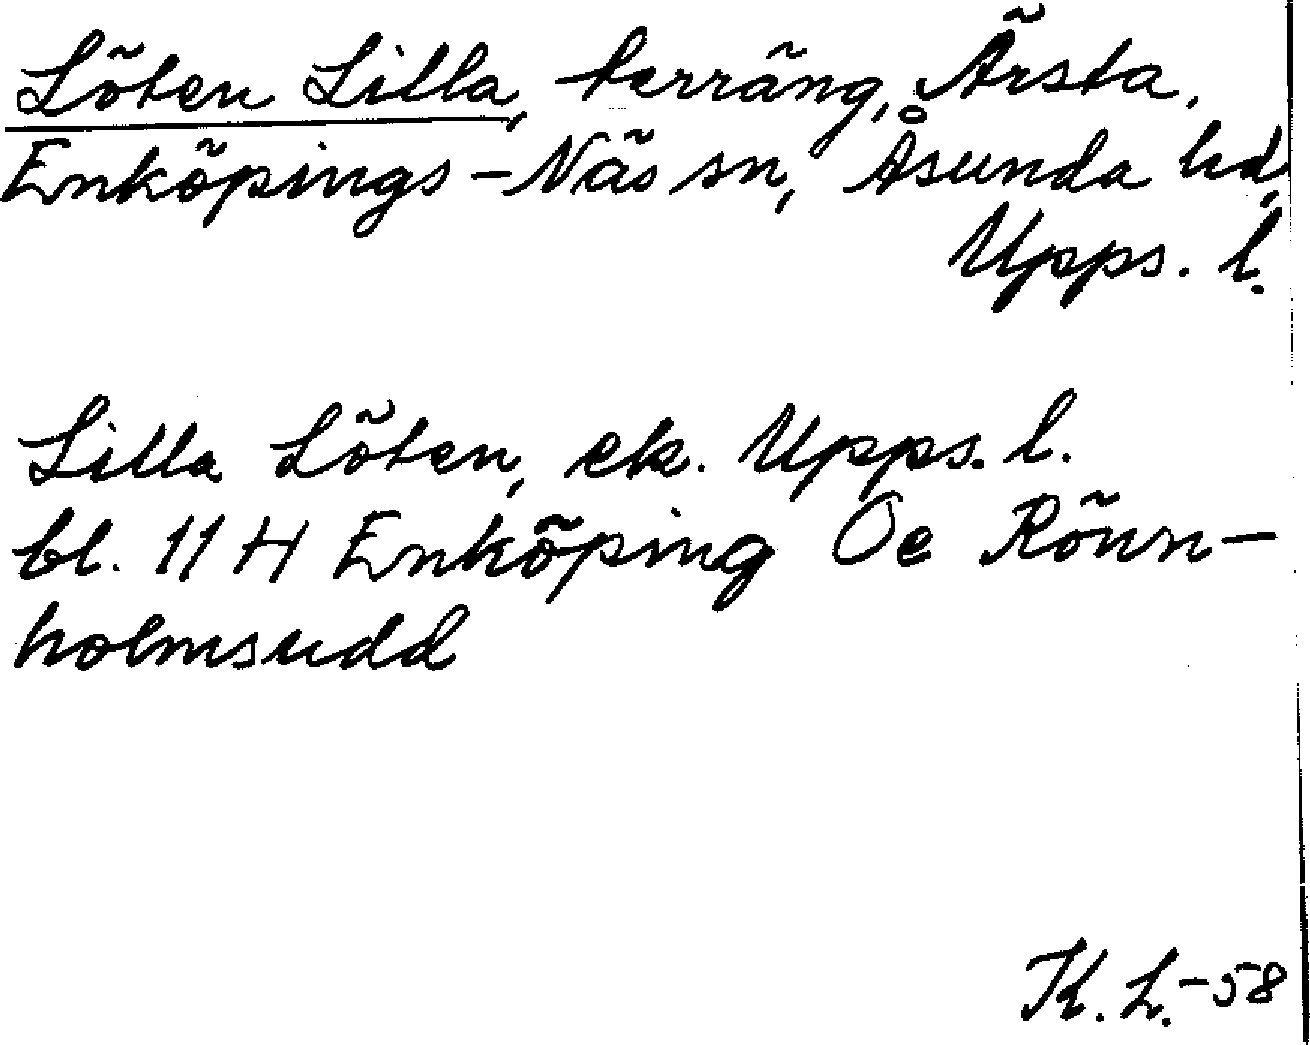 Löten Lilla, terräng, Ärsta,
Enköpings-Näs sn, Åsunda hd,
Upps. l.
Lilla Löten, ek. Upps. l.
bl. 11 H Enköping Öe Rönn-
holmsudd
K. L. -58